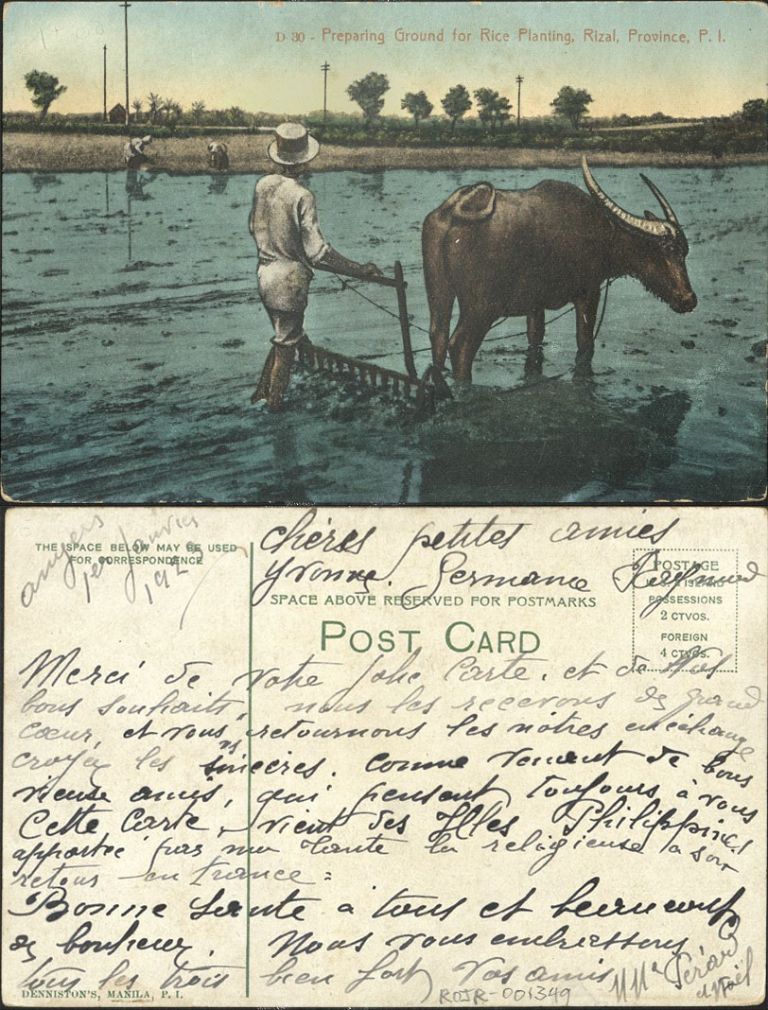 D 30 - Preparing Ground for Rice Planting, Rizal, Province, P. I.
angers
1er Janvier
THE SPACE BELOW MAY BE USED
FOR CORRESPONDENCE
chères petites amies
Yvonne. Germaine Raymond
SPACE ABOVE RESERVED FOR POSTMARKS
POSTAGE
POSSESSIONS
2 CTVOS.
FOREIGN
4 CTVOS.
POST CARD
Merci de votre jolie Carte, et de Vos
bons souhaits, nous les recevons de grand
cœur, et vous retournons les nôtres en échange
croyez les sincères. comme venant de bons
vieux amis, qui pensent toujours à vous
Cette Carte, vient des Illes Philippines
apportée par ma Tante la religieuse a son
retour en France =
Bonne Santé à tous et beaucoup
de bonheur. Nous vous embrassons
tous les trois bien fort Vos amis
DENNISTON'S, MANILA, P. I.
ROJR-001349